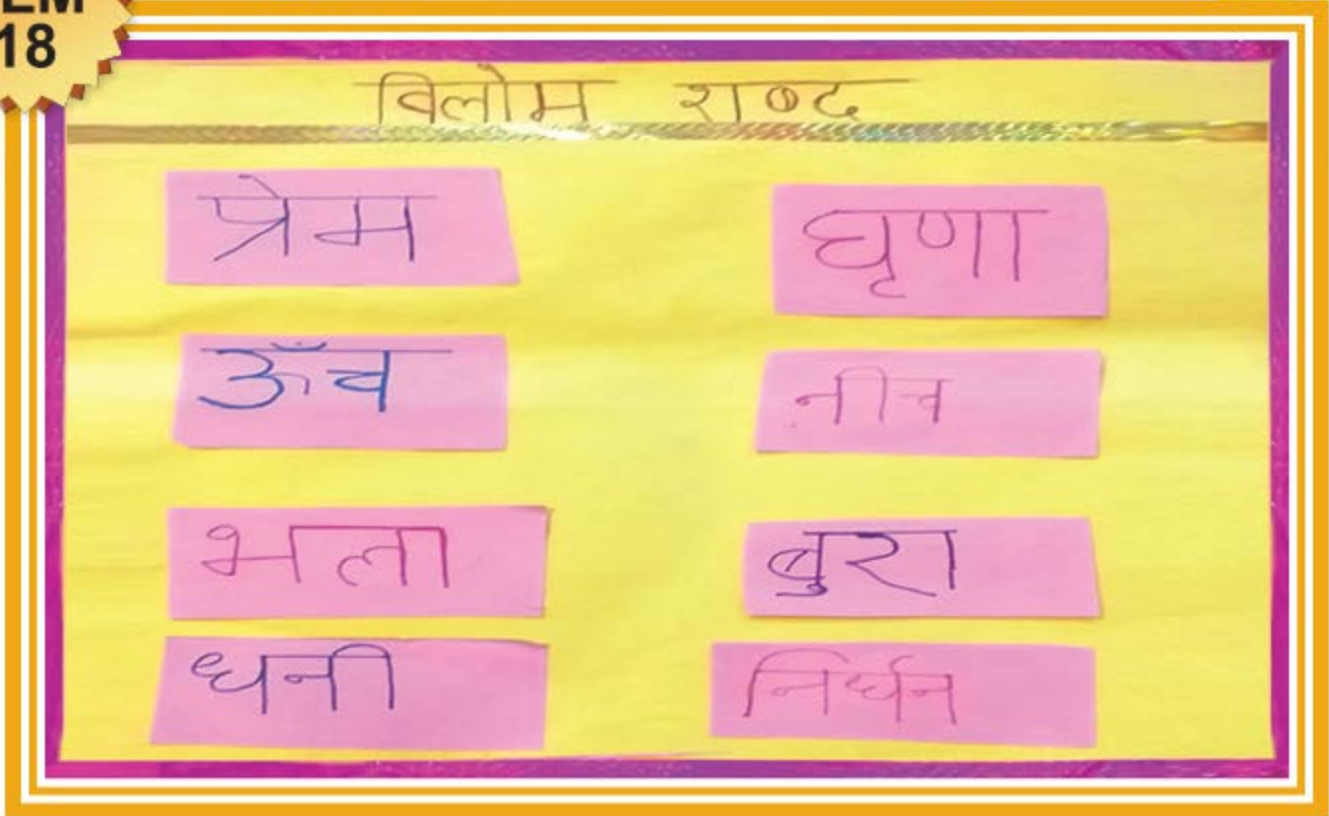 EM
18
विलोम शब्द
प्रेम घृणा
ऊँच नीच
भला बुरा
धनी निर्धन